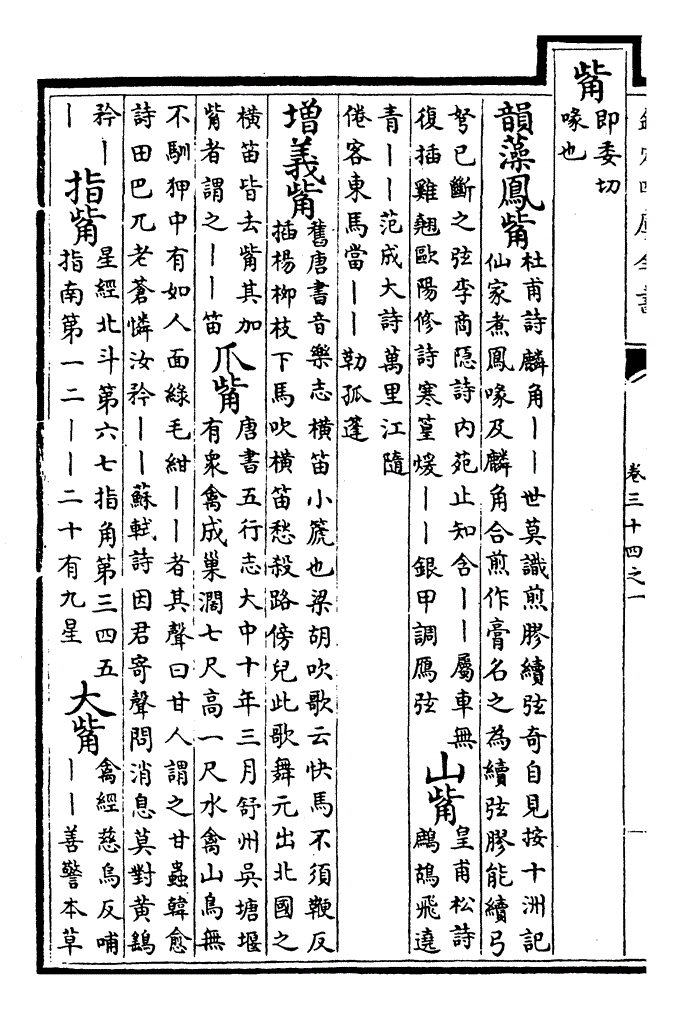 卷三十四之一
觜
即委切
喙也
韻藻鳳觜
杜甫詩麟角丨丨世莫識煎膠續弦奇自見按十洲記
仙家煮鳳喙及麟角合煎作膏名之為續弦膠能續弓
弩已斷之弦李商隐詩内苑止知含丨丨屬車無
復插雞翹歐陽修詩寒篁煖丨丨銀甲調鴈弦
山觜
皇甫松詩
鷓鴣飛遶
青丨丨范成大詩萬里江隨
倦客東馬當丨丨勒孤蓬
增義觜
舊唐書音樂志橫笛小箎也梁胡吹歌云快馬不須鞭反
插楊柳枝下馬吹橫笛愁殺路傍兒此歌舞元出北國之
橫笛皆去觜其加
觜者謂之丨丨笛
爪觜
唐書五行志大中十年三月舒州吳塘堰
有衆禽成巢濶七尺高一尺水禽山鳥無
不馴狎中有如人面綠毛紺丨丨者其聲曰甘人謂之甘蟲韓愈
詩田巴兀老蒼憐汝矜丨丨蘇軾詩因君寄聲問消息莫對黃鷂
矜丨
丨
指觜
星經北斗第六七指角第三四五
指南第一二丨丨二十有九星
大觜
禽經慈烏反哺
丨丨善警本草